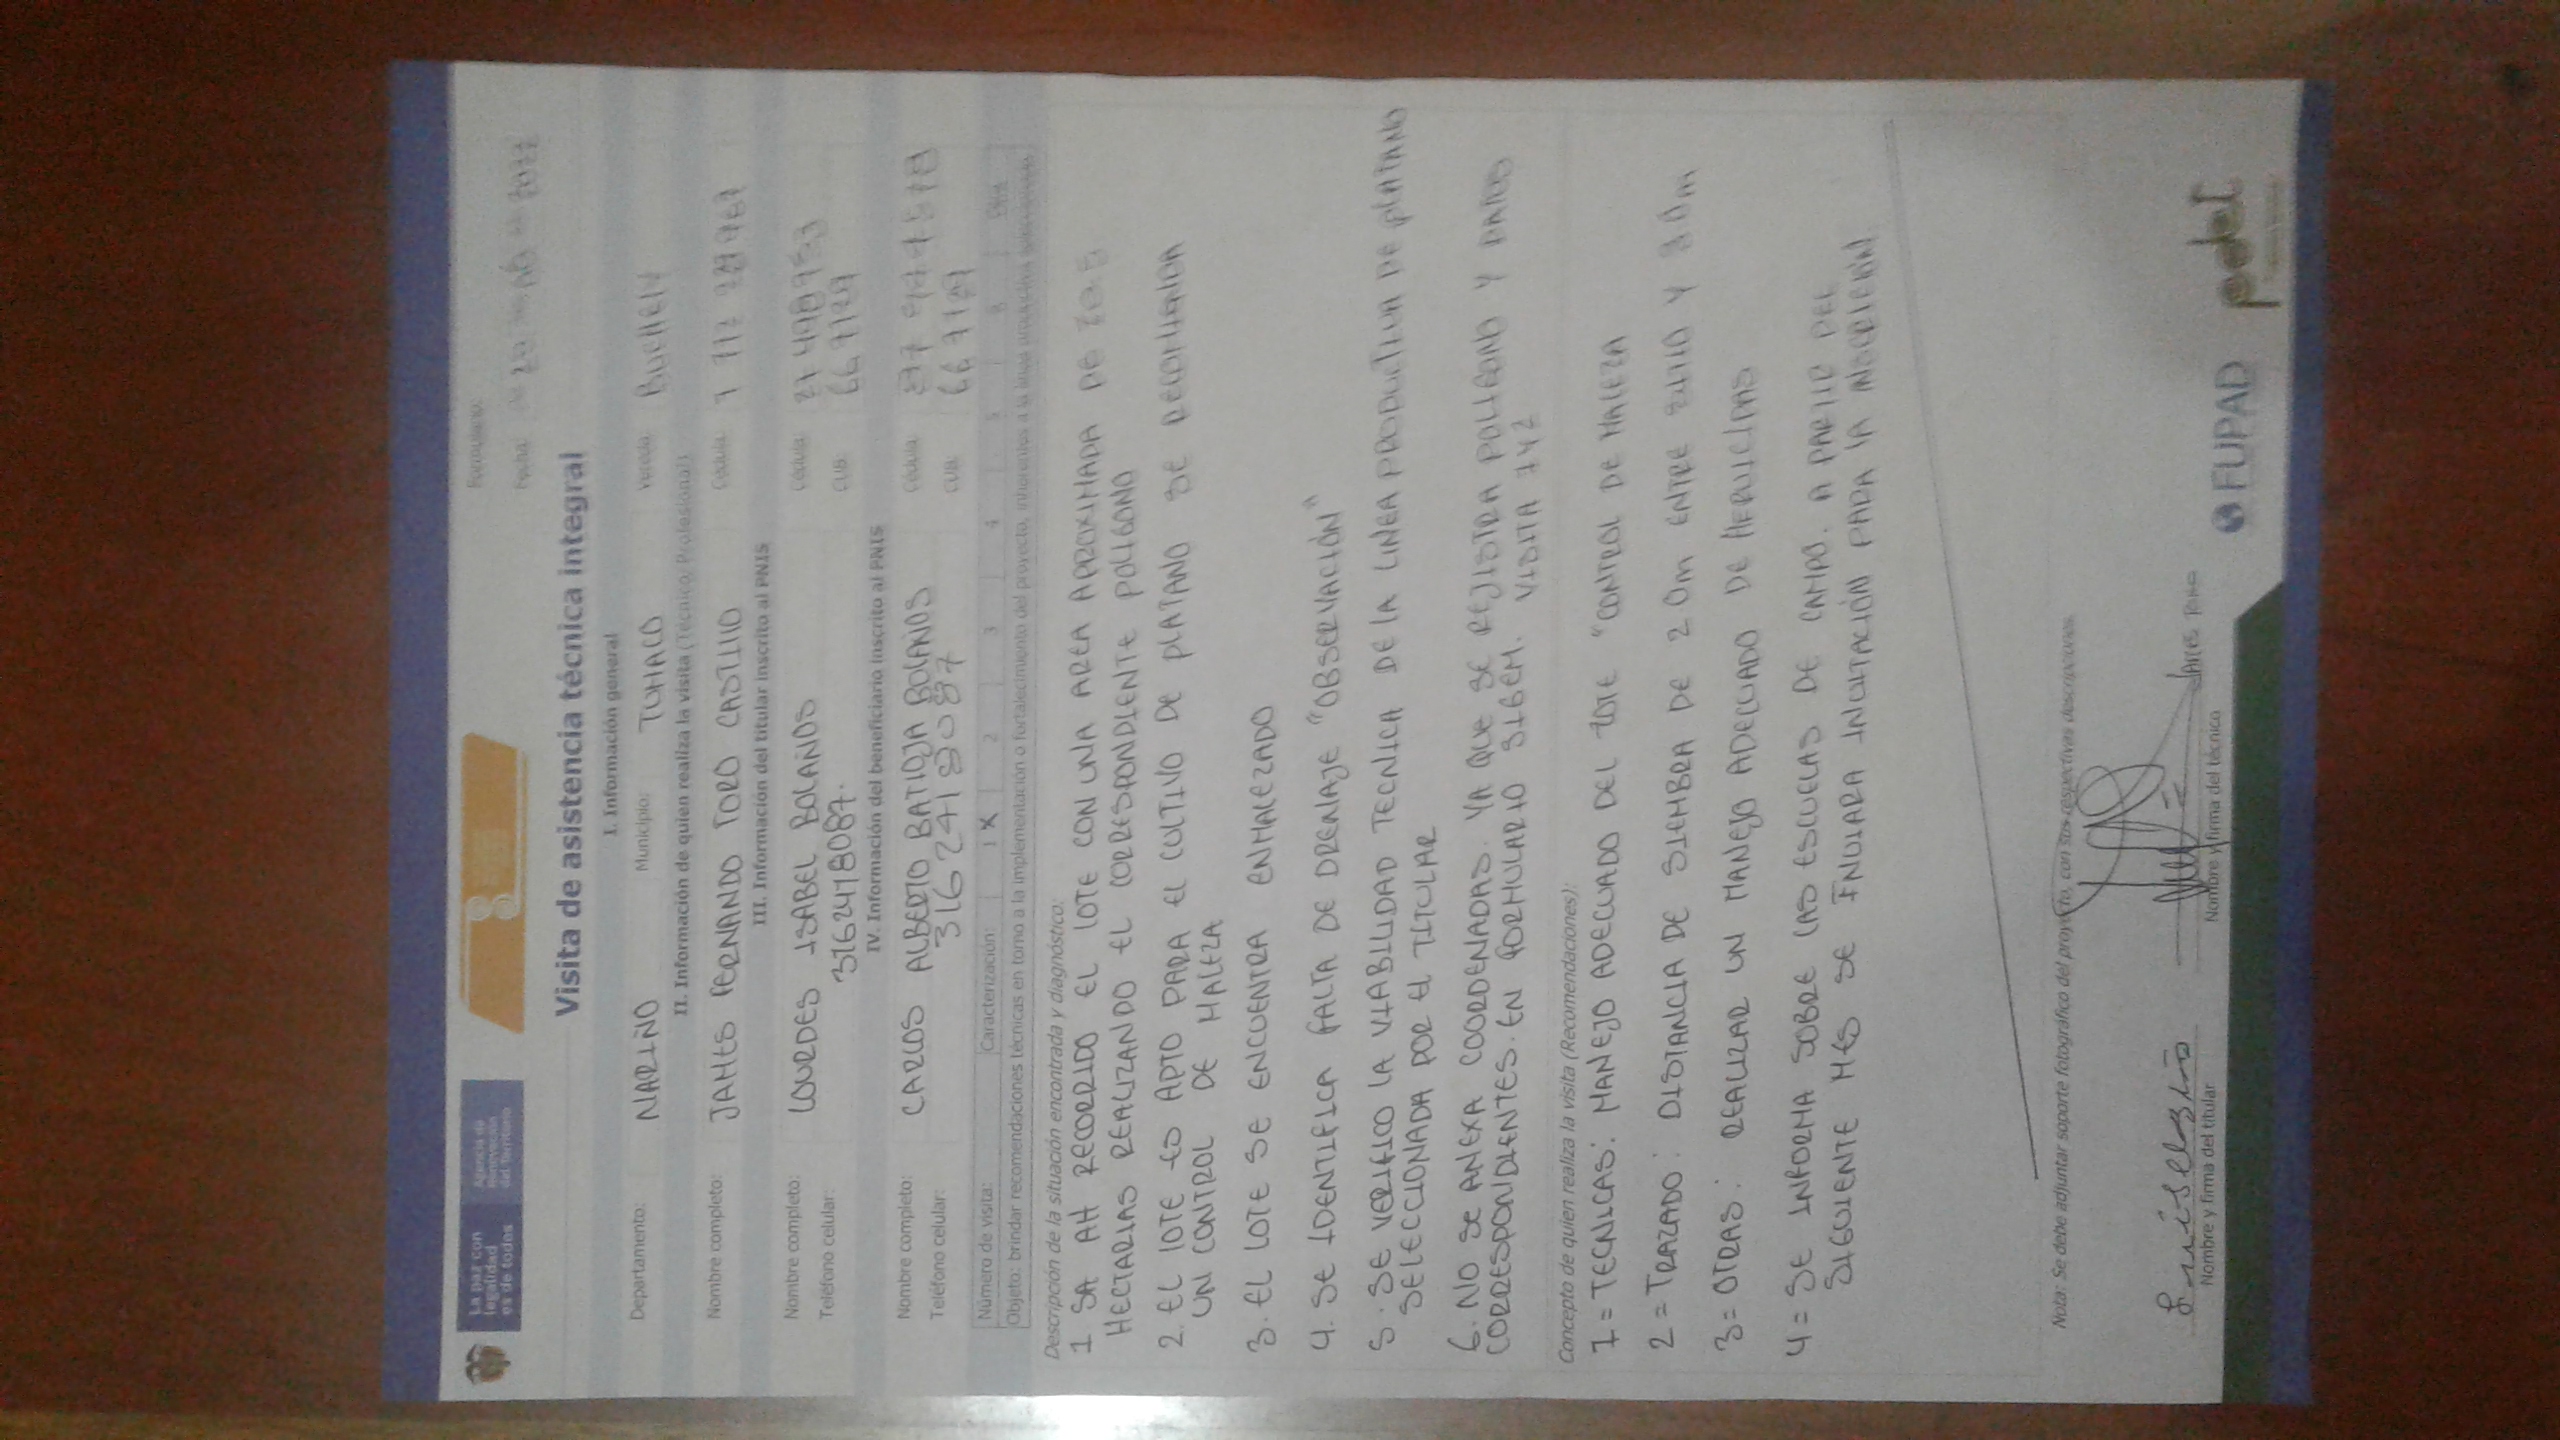 La paz con
legalidad
es de todos
Agencia de
Renovación
del Territorio
Formulario:
Fecha:
Visita de asistencia técnica integral
I. Información general
Departamento: NARIÑO Municipio: TUMACO Vereda:
II. Información de quien realiza la visita (Técnico, Profesional)
Nombre completo: JAMES FERNANDO TORO CASTILLO Cédula:
III. Información del titular inscrito al PNIS
Nombre completo: LOURDES ISABEL BOLAÑOS Cédula:
Teléfono celular: 3162418087. CUB:
IV. Información del beneficiario inscrito al PNIS
Nombre completo: CARLOS ALBERTO BATIOJA BOLAÑOS Cédula:
Teléfono celular: 3162418087 CUB:
Número de visita: Caracterización: 1 X 2 3 4 5
Objeto: brindar recomendaciones técnicas en torno a la implementación o fortalecimiento del proyecto, inherentes a la línea productiva seleccionada
Descripción de la situación encontrada y diagnóstico:
1 SA AH RECORRIDO EL LOTE CON UNA AREA APROXIMADA DE
HECTARIAS REALIZANDO EL CORRESPONDIENTE POLIGONO
2. EL LOTE ES APTO PARA EL CULTIVO DE PLATANO SE RECOMIENDA
UN CONTROL DE MALEZA
3. EL LOTE SE ENCUENTRA ENMALEZADO
4. SE IDENTIFICA FALTA DE DRENAJE "OBSERVACIÓN"
5. SE VERIFICO LA VIABILIDAD TECNICA DE LA LINEA PRODUCTIVA DE PLATANO
SELECCIONADA POR EL TITULAR
6. NO SE ANEXA COORDENADAS. YA QUE SE REJISTRA POLIGONO Y DATOS
CORRESPONDIENTES. EN FORMULARIO SIGEM. VISITA 142
Concepto de quien realiza la visita (Recomendaciones):
1 = TECNICAS: MANEJO ADECUADO DEL LOTE "CONTROL DE MALEZA
2 = TRAZADO: DISTANCIA DE SIEMBRA DE 2.0m ENTRE SITIO Y 3.0m
3 = OTRAS: REALIZAR UN MANEJO ADECUADO DE HERVICIDAS
4 = SE INFORMA SOBRE LAS ESCUELAS DE CAMPO. A PARTIR DEL
SIGUIENTE MES SE INVIARA INCITACIÓN PARA LA
Nota: Se debe adjuntar soporte fotográfico del proyecto, con sus respectivas descripciones.
Nombre y firma del titular
Nombre y firma del técnico
FUPAD
pdet